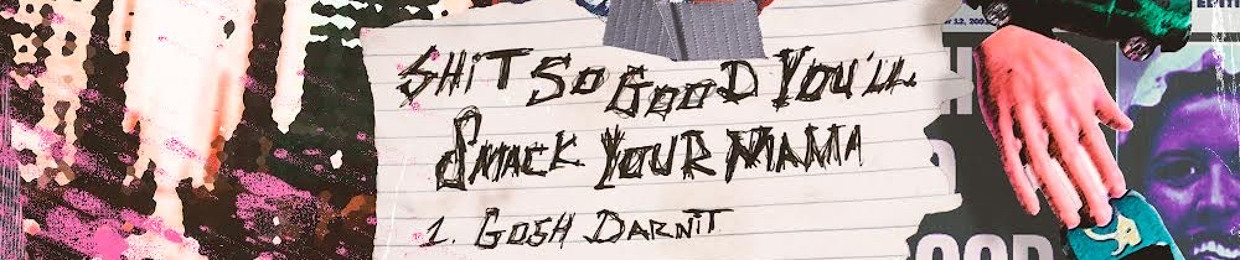 SHiT SO GOOD YOU'LL
SMACK YOUR MAMA
1. GOSH DARNiT